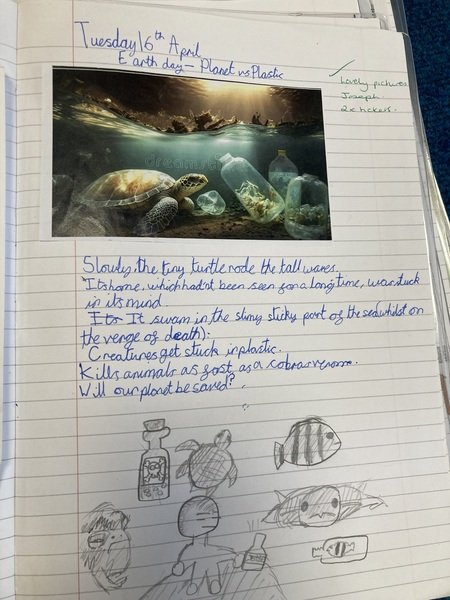 Tuesday 16th April
Earth day - Planet vs Plastic
✓
Lovely pictures
Joseph
2 stickers.
dreamusha
Slowly, the tiny turtle rode the tall waves.
Its home, which hadn't been seen for a long time, was stuck
in its mind
It swam in the slimy sticky part of the sea whilst on
the verge of death):
Creatures get stuck in plastic.
Kills animals as fast as a cobras venom.
Will our planet be saved?